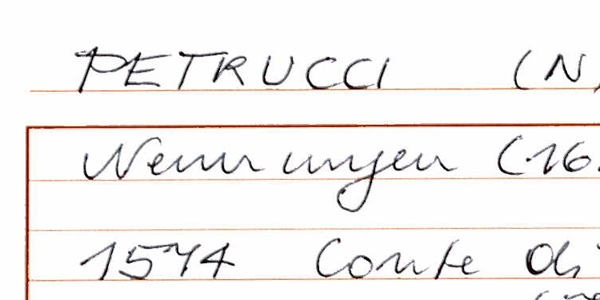 PETRUCCI (N)
Nennungen (16.
1574 Conte di